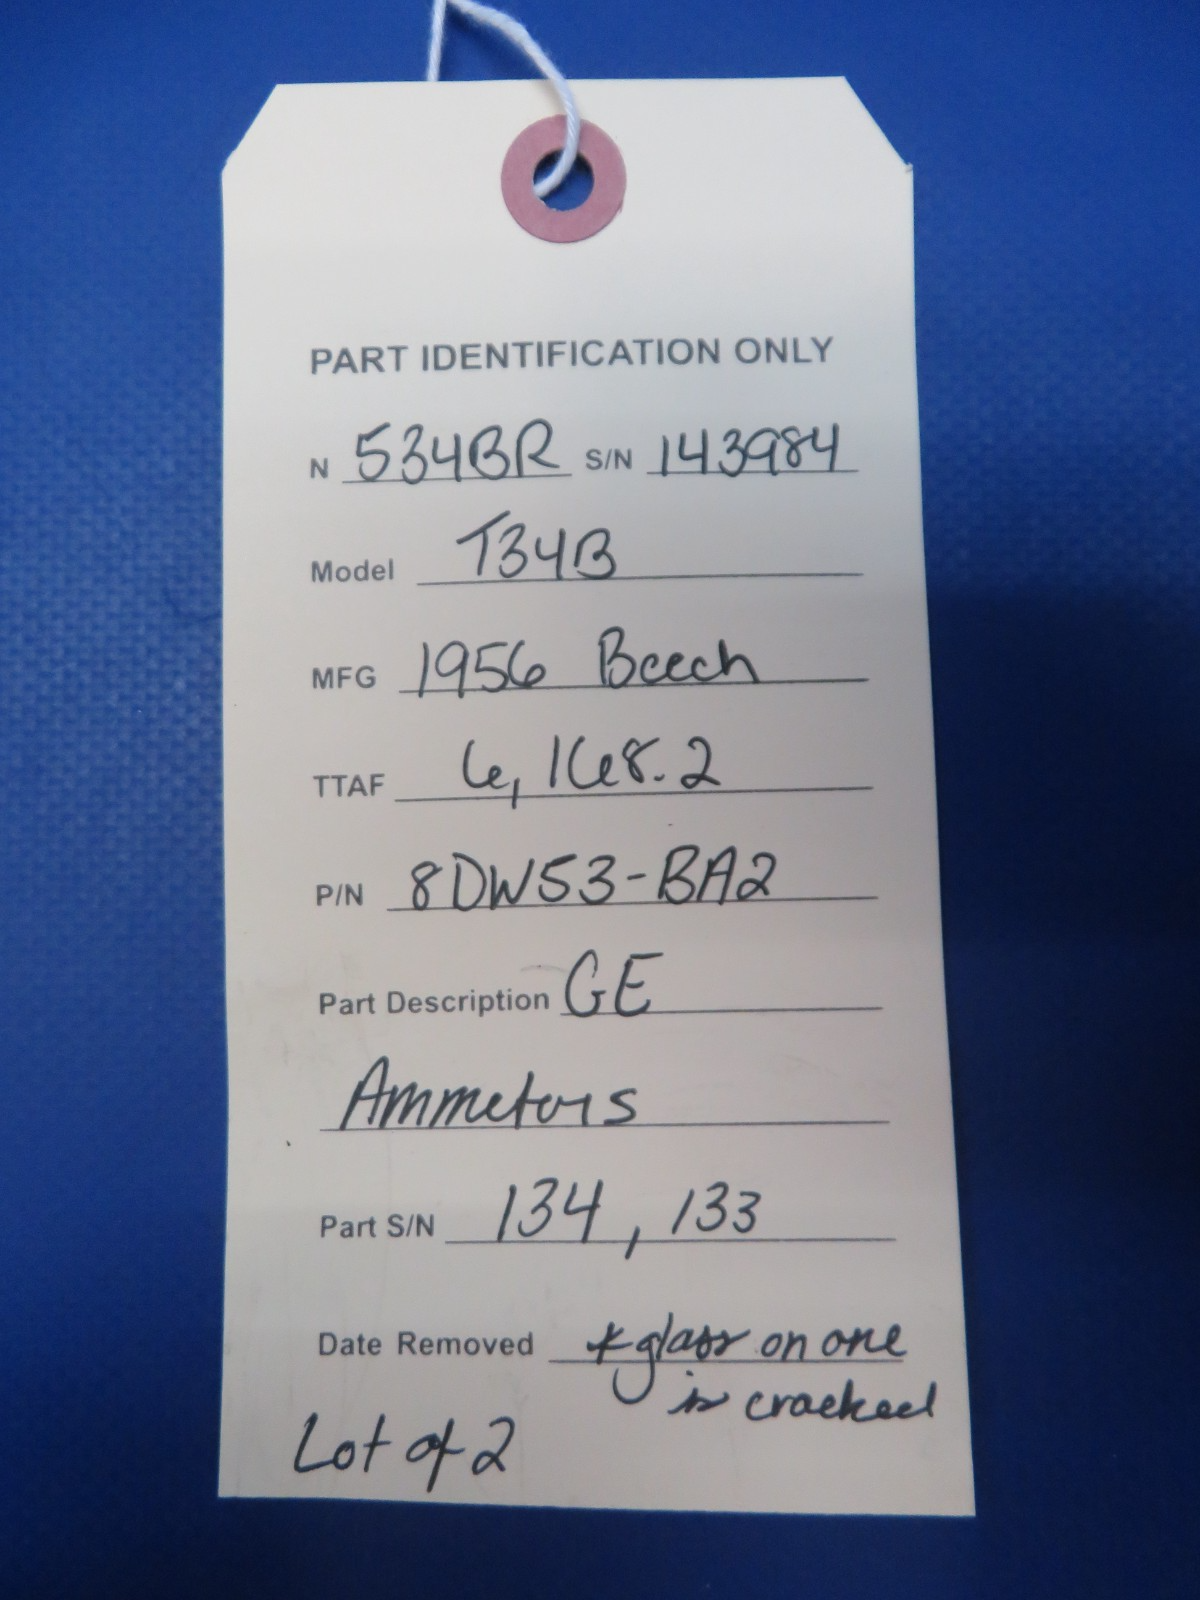 PART IDENTIFICATION ONLY
N 534BR S/N 143984
Model T34B
MFG 1956 Beech
TTAF 6,168.2
P/N 8DW53-BA2
Part Description GE
Ammeters
Part S/N 134, 133
Date Removed *glass on one
is cracked
Lot of 2